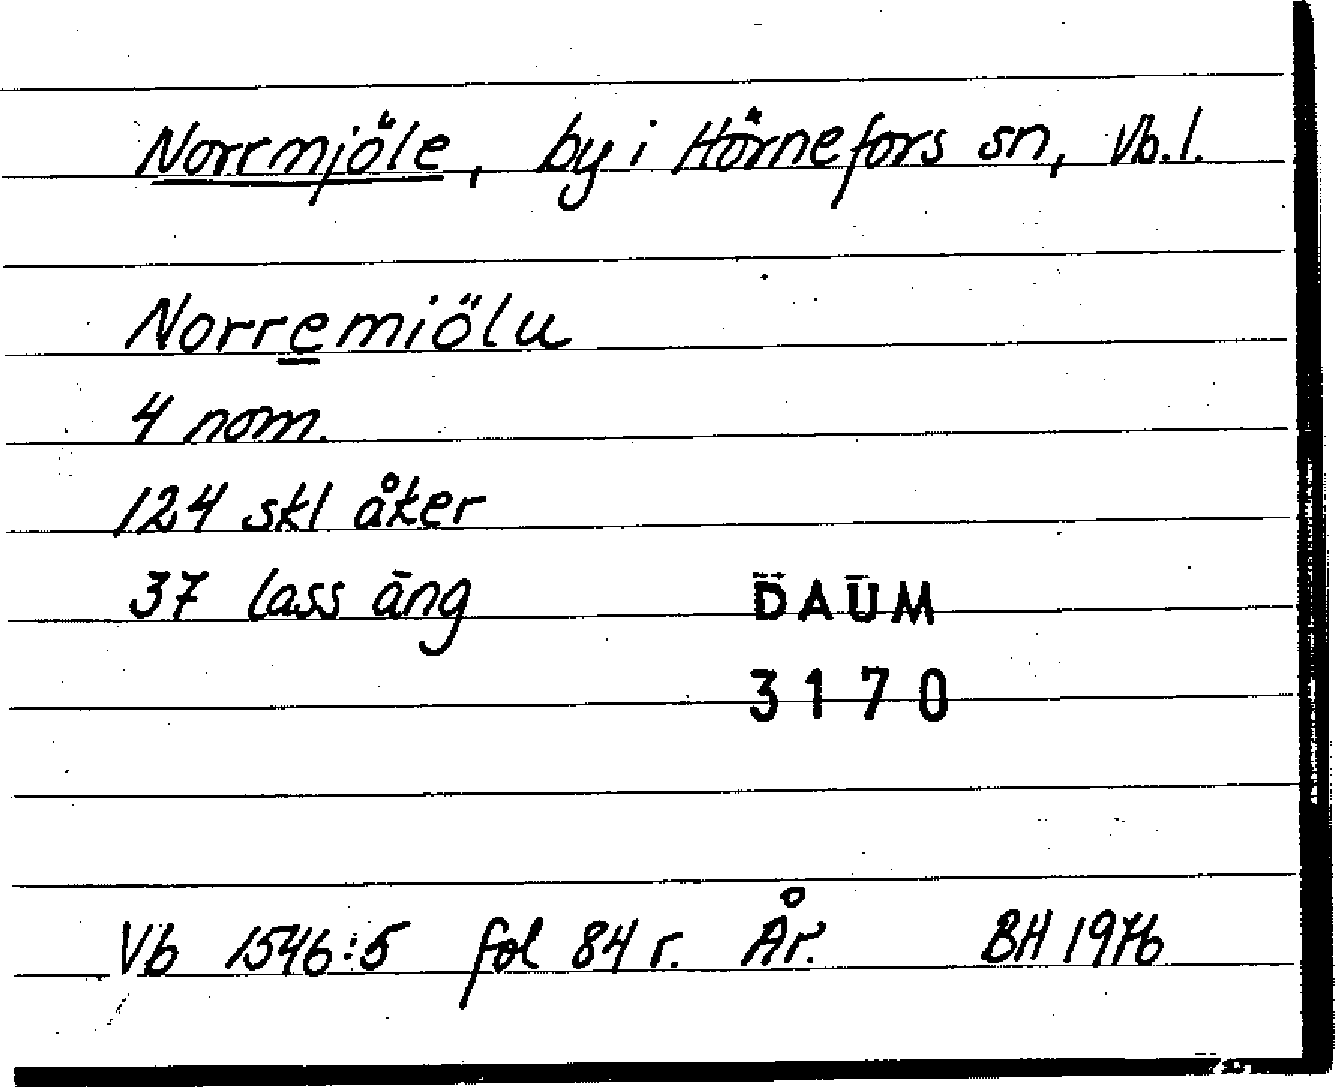 Norrmjöle, by i Hörnefors sn, Vb.l.
Norremiölu
4 nom.
124 skl åker
37 lass äng
DAUM
3170
Vb 1546:5 fol 84 r. År. BH 1976